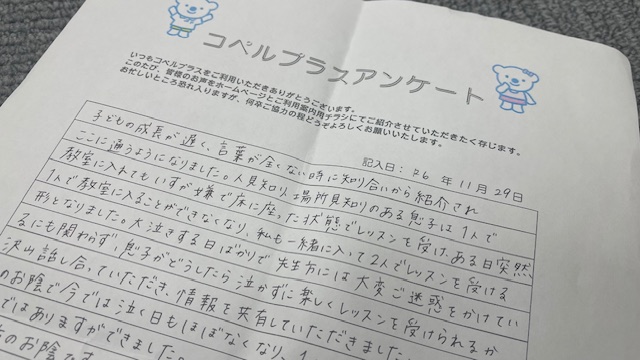 コペルプラスアンケート
いつもコペルプラスをご利用いただきありがとうございます。
このたび、皆様のお声をホームページとご利用案内用チラシにてご紹介させていただきたく存じます。
お忙しいところ恐れ入りますが、何卒ご協力の程どうぞよろしくお願いいたします。
記入日：R6 年 11月 29日
子どもの成長が遅く、言葉が全くない時に知り合いから紹介され
ここに通うようになりました。人見知り、場所見知りのある息子は1人で
教室に入れてもいすが嫌で床に座った状態でレッスンを受け、ある日突然
1人で教室に入ることができなくなり、私も一緒に入って2人でレッスンを受ける
形となりました。大泣きする日ばかりで先生方には大変ご迷惑をかけてい
るにも関わらず、息子がどうしたら泣かずに楽しくレッスンを受けられるか
沢山話し合っていただき、情報を共有していただきました
のお陰で今では泣く日もほぼなくなり、1
ではありますができました。